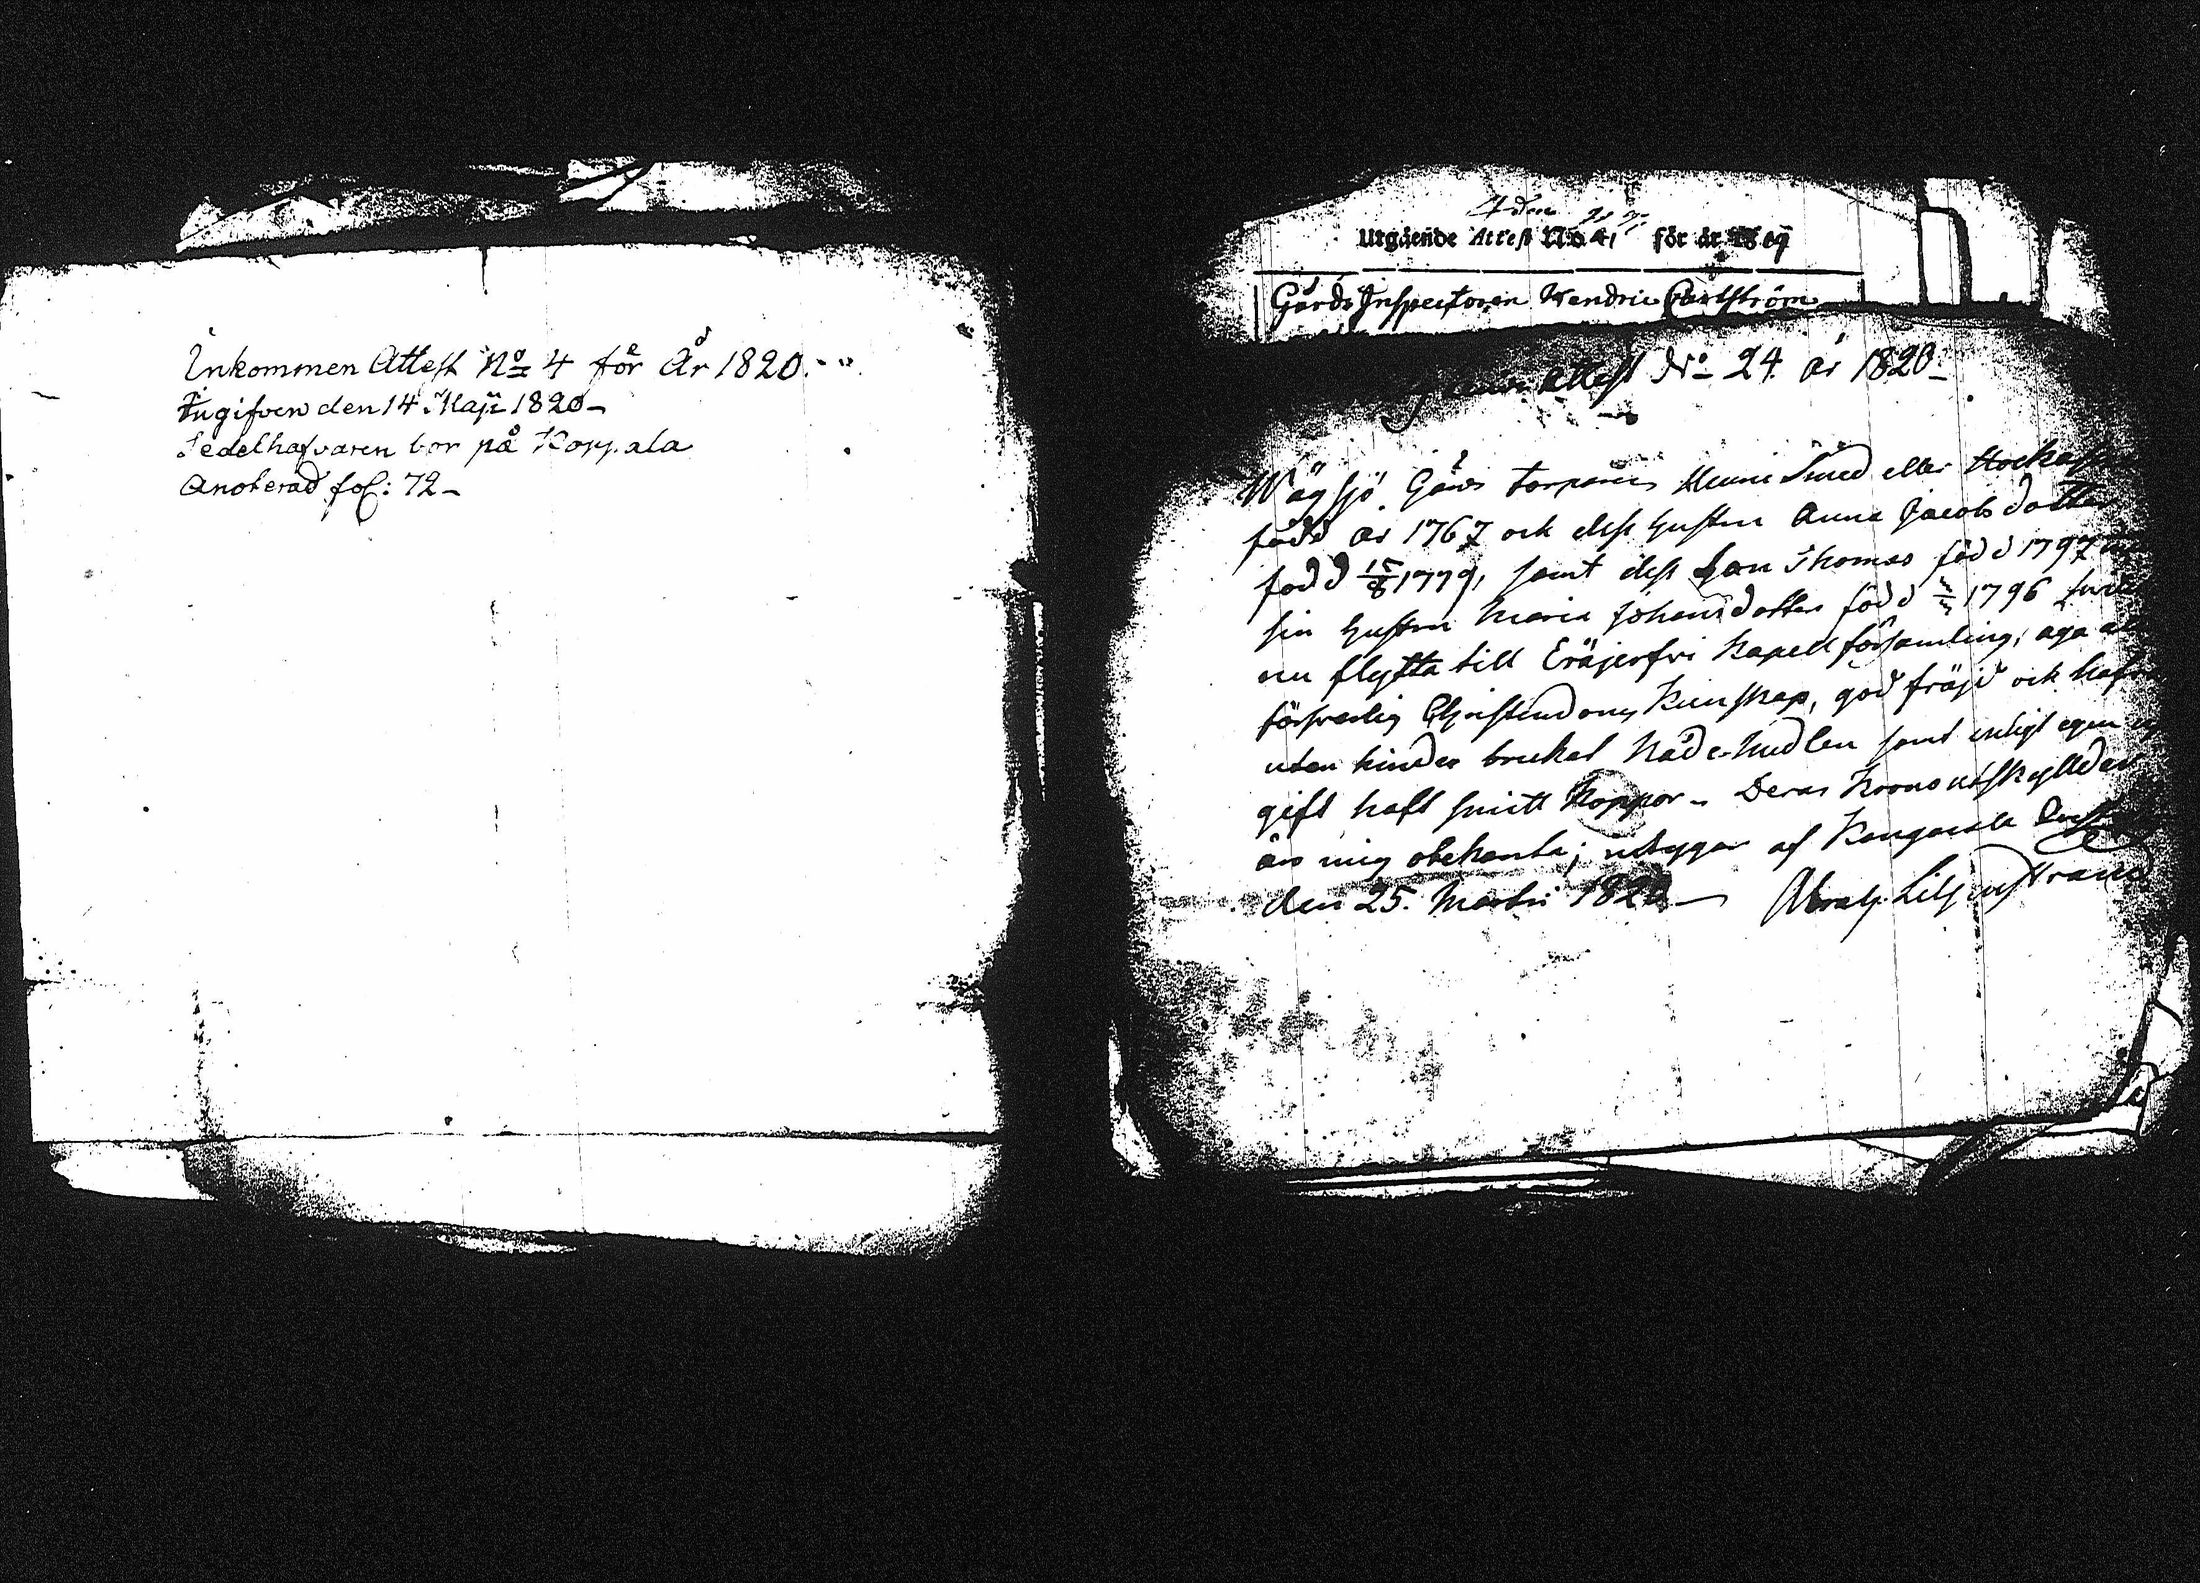 Inkommen Attest No 4 för År 1820.
Ingifven den 14 Maji 1820 -
Sedelhafvaren bor på Koppala
Anoterad fol: 72 -
Utgående Attest No 41 för år 1809
Gårds Inspectoren Hendric Carlström
attest No 24. år 1820.
Wägsjö Gårds torparen Smed eller
född år 1767 och dess hustru Anna Jacobs dotter
född 15/8 1779, samt dess Son Thomas född 1797
sin hustru Maria Johans dotter född 1796
nu flytta till Eräjerfvi Kapell församling, äga
försvarlig Christendoms Kunskap, god fräjd och
utan hinder brukat Nåde-Medlen samt enligt egen
gift haft Koppor - Deras Krono utskyllder
äro mig obekanta; af Kangasala
den 25. Martii 1820 - Abrah. Liljenstrand